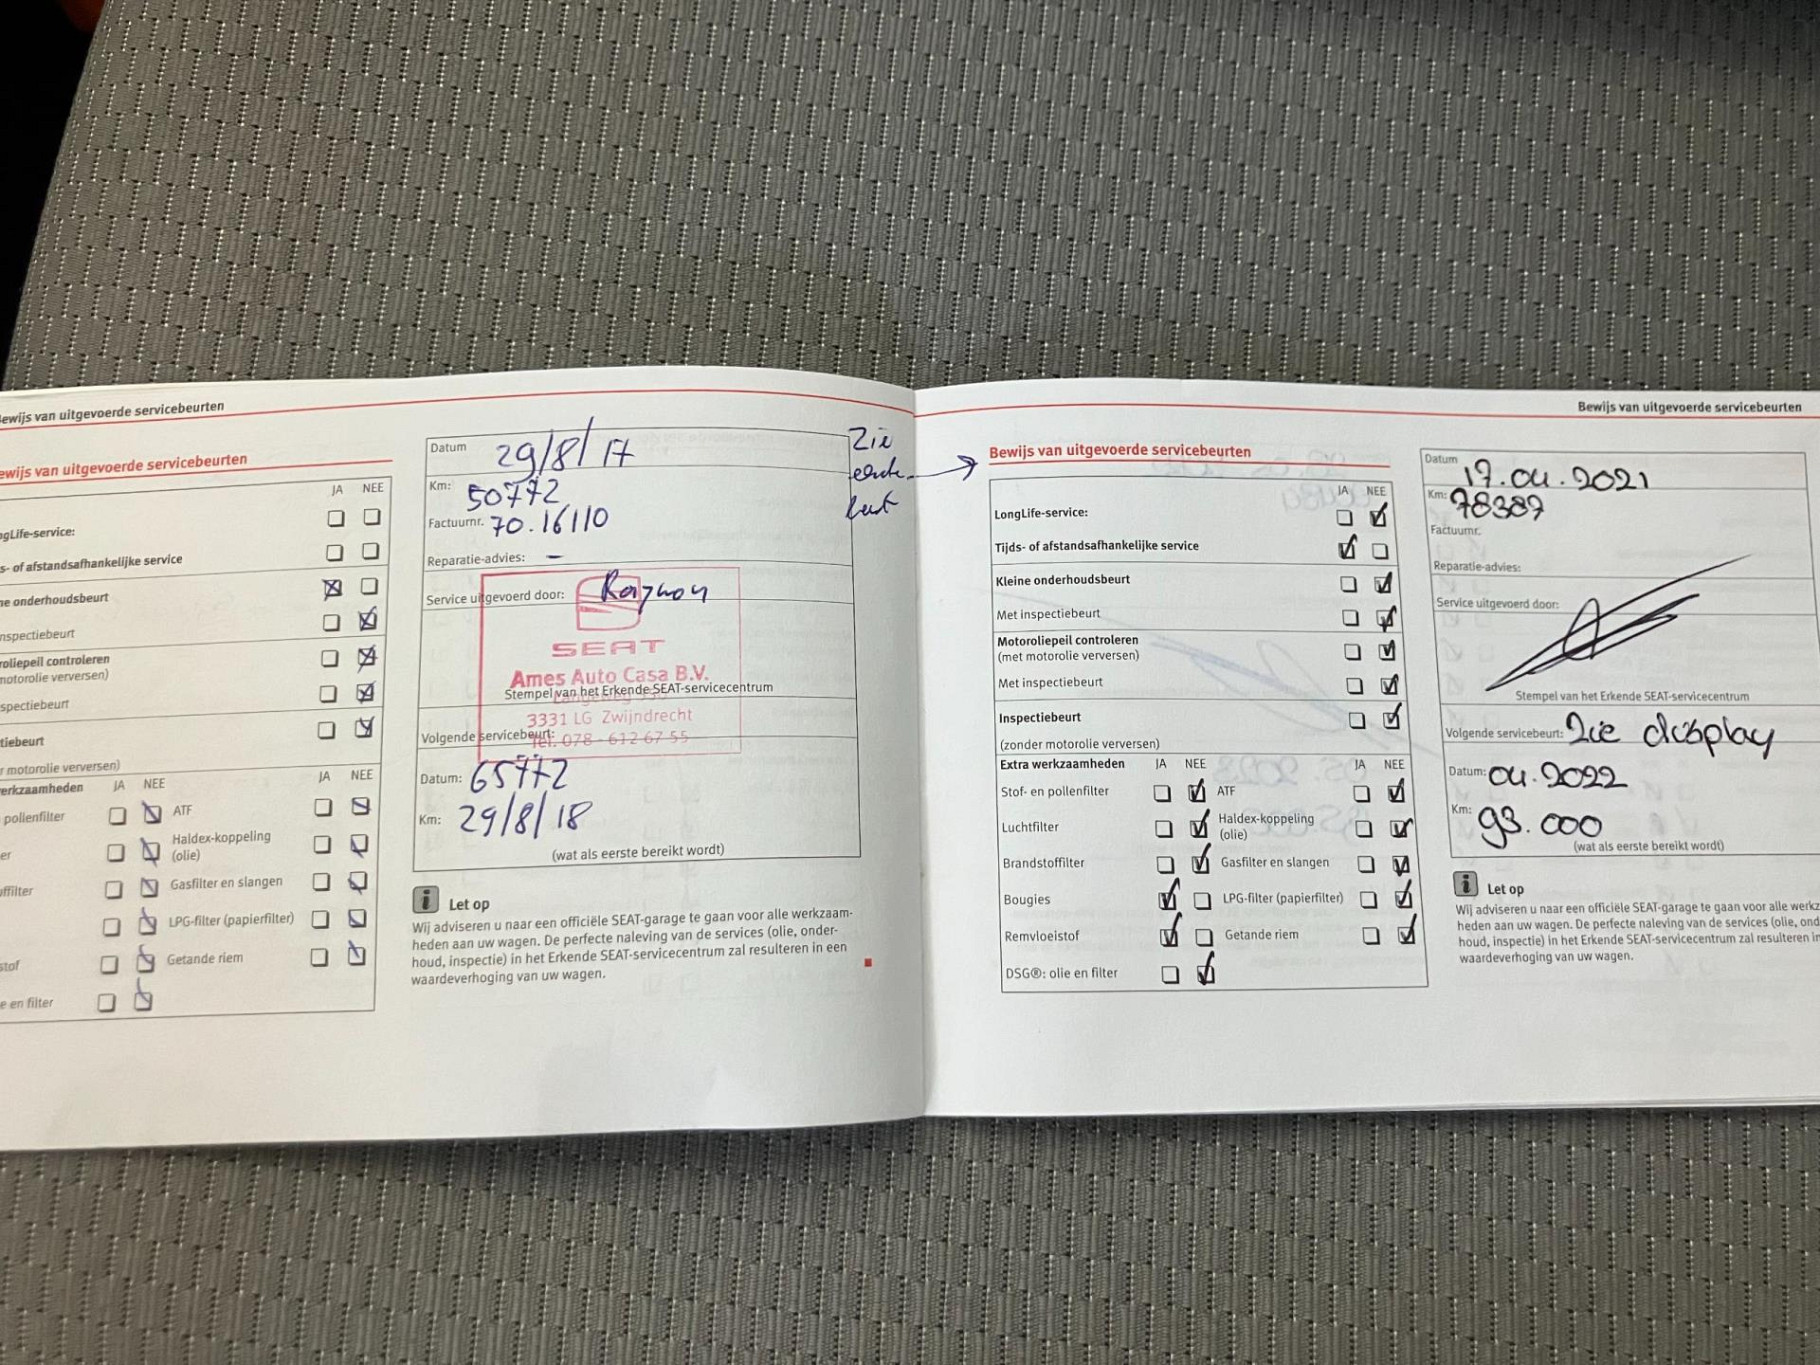 Bewijs van uitgevoerde servicebeurten
ewijs van uitgevoerde servicebeurten
JA NEE
ngLife-service:
s- of afstandsafhankelijke service
ne onderhoudsbeurt
nspectiebeurt
roliepeil controleren
motorolie verversen)
spectiebeurt
tiebeurt
r motorolie verversen)
erkzaamheden JA NEE JA NEE
pollenfilter ATF
er Haldex-koppeling
(olie)
ffilter Gasfilter en slangen
LPG-filter (papierfilter)
stof Getande riem
e en filter
Datum 29/8/17
Km: 50772
Factuurnr. 70.16110
Reparatie-advies: –
Service uitgevoerd door:
SEAT
Ames Auto Casa B.V.
Stempel van het Erkende SEAT-servicecentrum
3331 LG Zwijndrecht
Volgende servicebeurt:
Tel. 078 - 612 67 55
Datum: 65772
Km: 29/8/18
(wat als eerste bereikt wordt)
Zie
i Let op
Wij adviseren u naar een officiële SEAT-garage te gaan voor alle werkzaam-
heden aan uw wagen. De perfecte naleving van de services (olie, onder-
houd, inspectie) in het Erkende SEAT-servicecentrum zal resulteren in een
waardeverhoging van uw wagen.
Bewijs van uitgevoerde servicebeurten
Bewijs van uitgevoerde servicebeurten
JA NEE
LongLife-service:
Tijds- of afstandsafhankelijke service
Kleine onderhoudsbeurt
Met inspectiebeurt
Motoroliepeil controleren
(met motorolie verversen)
Met inspectiebeurt
Inspectiebeurt
(zonder motorolie verversen)
Extra werkzaamheden JA NEE JA NEE
Stof- en pollenfilter ATF
Luchtfilter Haldex-koppeling
(olie)
Brandstoffilter Gasfilter en slangen
Bougies LPG-filter (papierfilter)
Remvloeistof Getande riem
DSG®: olie en filter
Datum 17.04.2021
Km: 78387
Factuurnr.
Reparatie-advies:
Service uitgevoerd door:
Stempel van het Erkende SEAT-servicecentrum
Volgende servicebeurt: Zie display
Datum: 04.2022
Km: 93.000
(wat als eerste bereikt wordt)
i Let op
Wij adviseren u naar een officiële SEAT-garage te gaan voor alle werkz
heden aan uw wagen. De perfecte naleving van de services (olie, ond
houd, inspectie) in het Erkende SEAT-servicecentrum zal resulteren in
waardeverhoging van uw wagen.